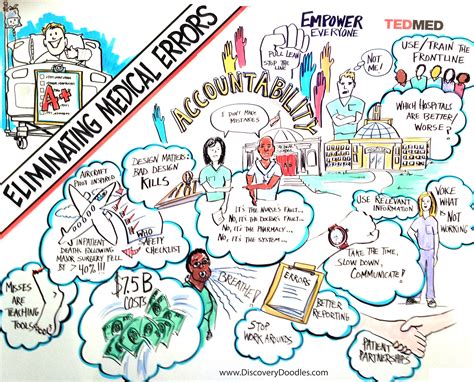 ELIMINATING MEDICAL ERRORS
A+
EMPOWER
EVERYONE
TEDMED
PULL LEAN
STOP THE
LINE
NOT
ME!
USE/TRAIN THE
FRONTLINE
ACCOUNTABILITY
I DON'T MAKE
MISTAKES
WHICH HOSPITALS
ARE BETTER/
WORSE?
AIRCRAFT
PILOT INSPIRED
SAFETY
CHECKLIST
INPATIENT
DEATHS FOLLOWING
MAJOR SURGERY FELL
BY
>40%!!!
DESIGN MATTERS:
BAD DESIGN
KILLS
IT'S THE NURSES FAULT...
NO, IT'S DR. DOCTOR'S FAULT...
NO, IT'S THE PHARMACY...
NO, IT'S THE SYSTEM...
USE RELEVANT
INFORMATION
VOICE
WHAT IS
NOT
WORKING
TAKE THE TIME,
SLOW DOWN,
COMMUNICATE!
MESSES
ARE
TEACHING
TOOLS
$7.5B
COSTS
BREATHE!
ERRORS
BETTER
REPORTING
STOP
WORK AROUNDS
PATIENT
PARTNERSHIPS
www.DiscoveryDoodles.com